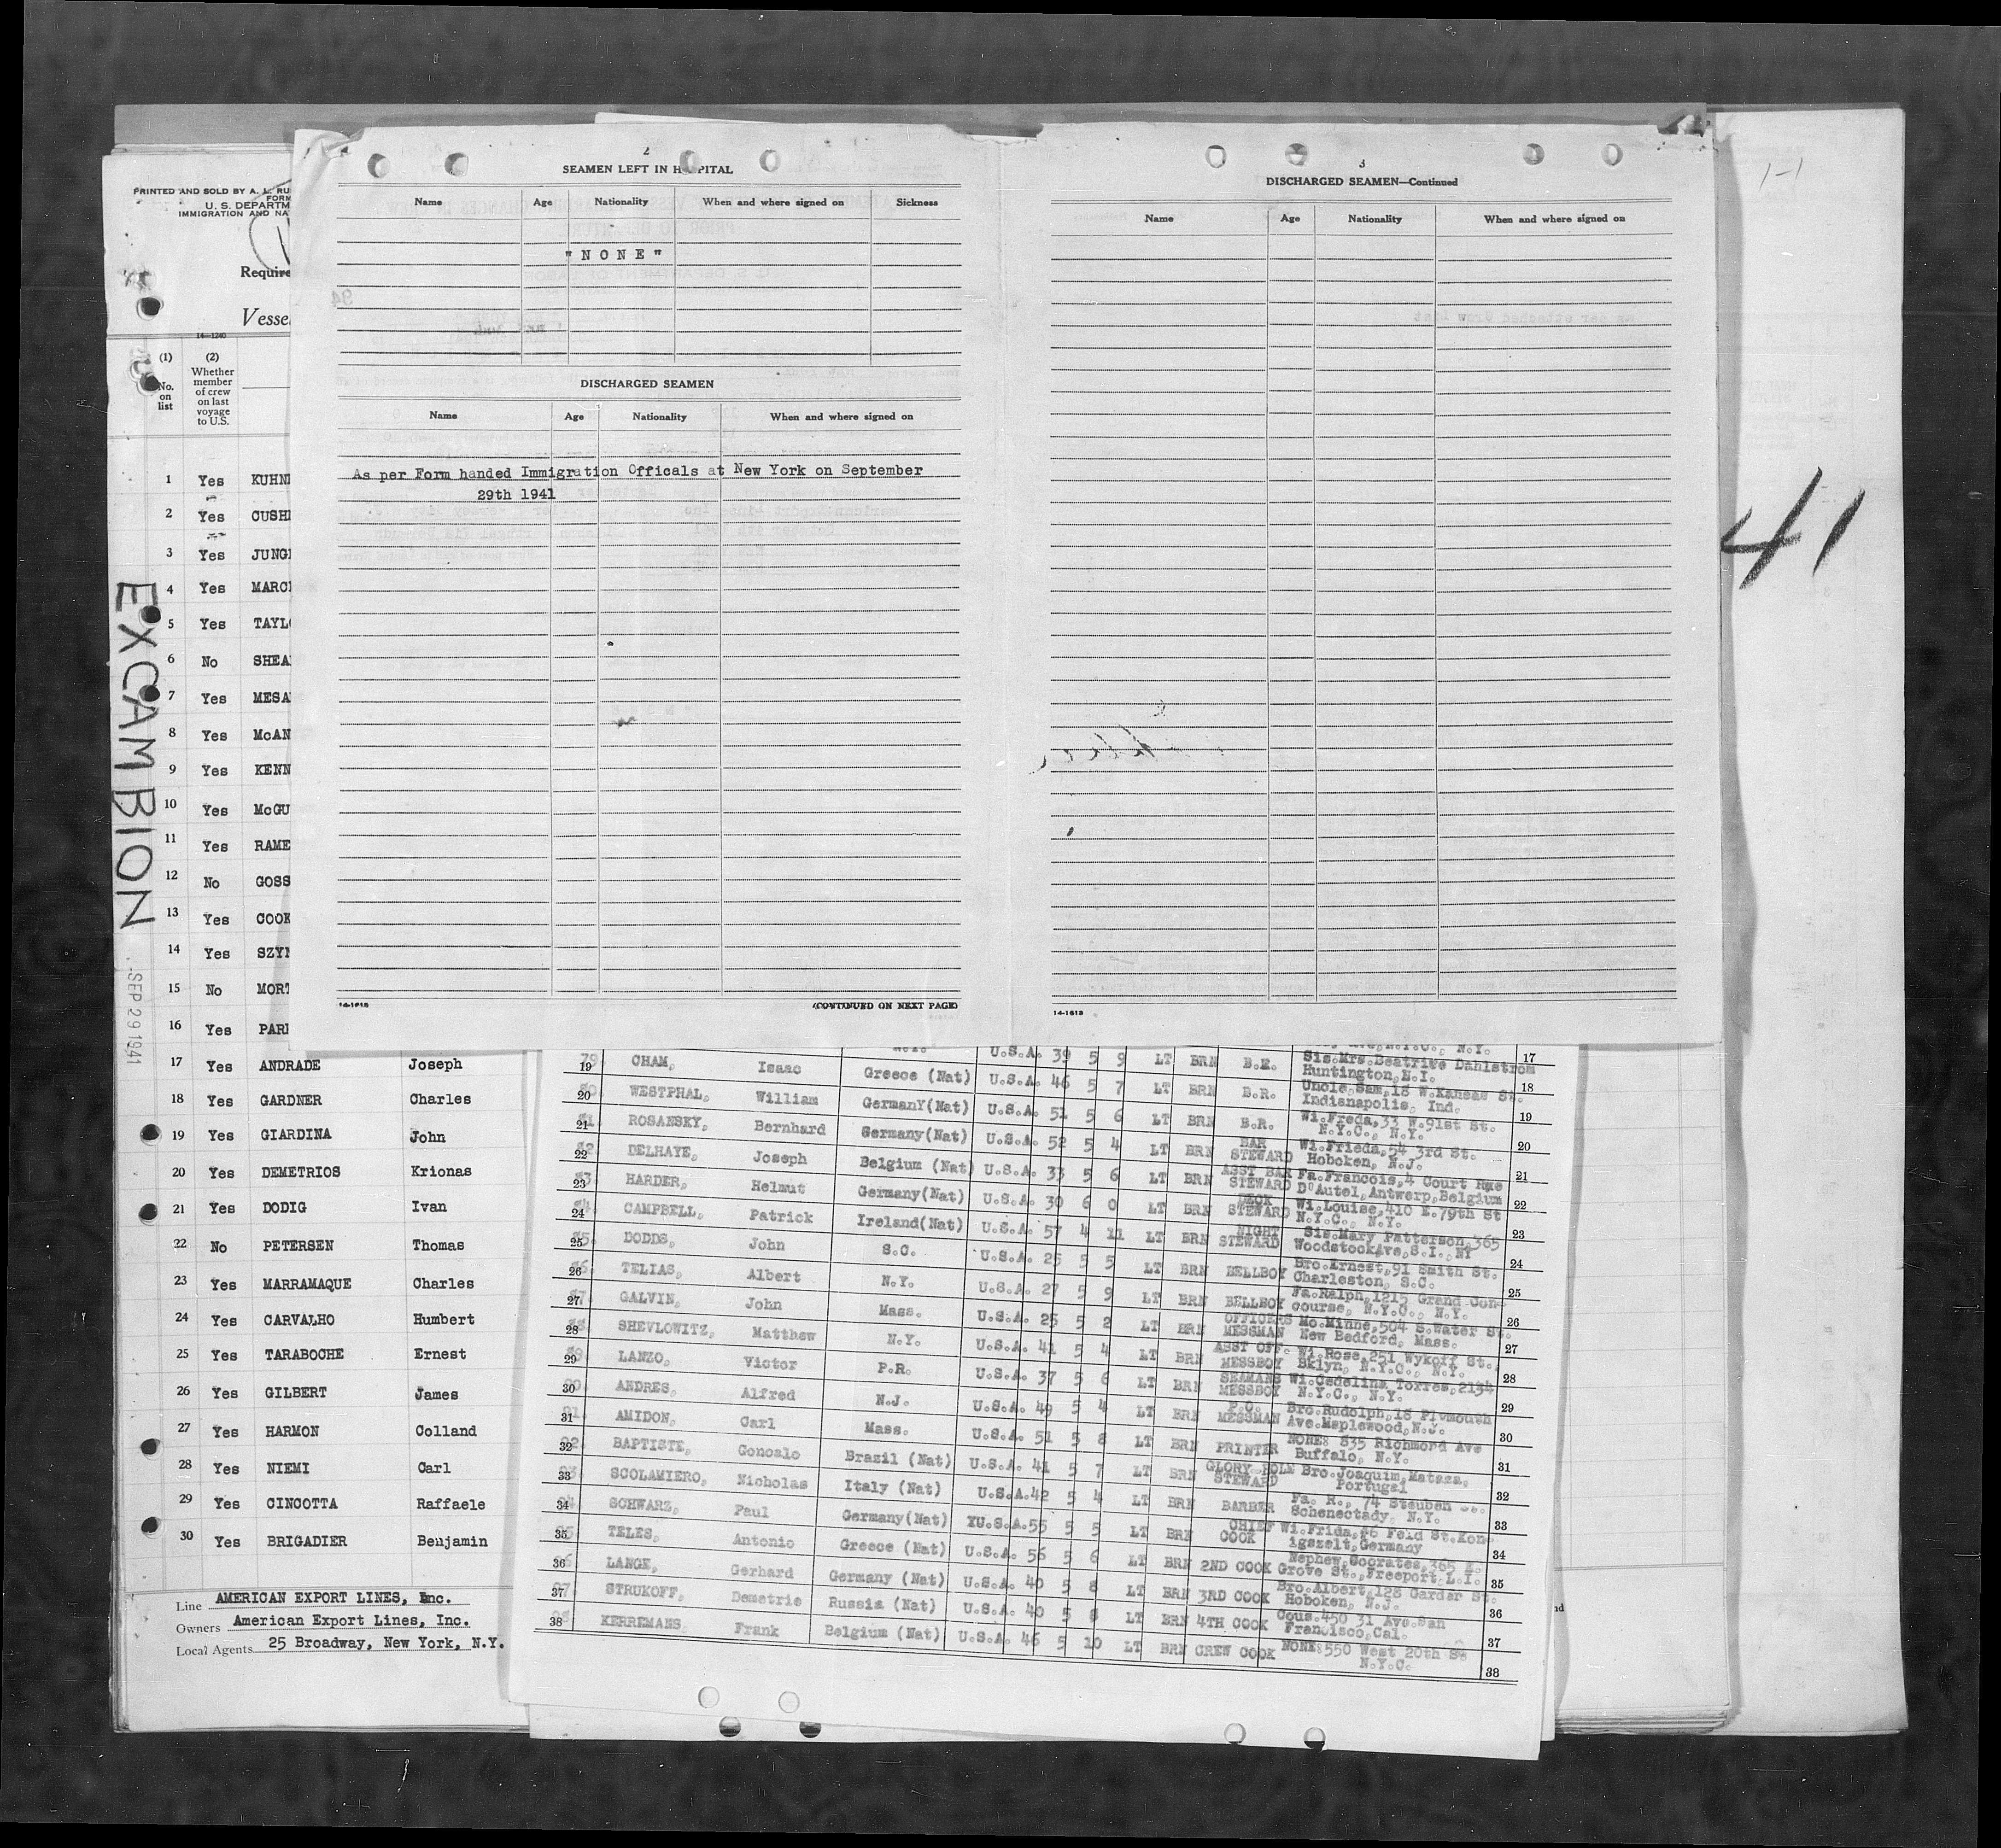 PRINTED AND SOLD BY A. L. RU
FORM
U. S. DEPARTM
IMMIGRATION AND NA
Require
Vesse
14-1240
(1)
No.
on
list
(2)
Whether
member
of crew
on last
voyage
to U.S.
1 Yes KUHN
2 Yes CUSH
3 Yes JUNG
4 Yes MARC
5 Yes TAYL
6 No SHEA
7 Yes MESA
8 Yes McAN
9 Yes KENN
10 Yes McGU
11 Yes RAME
12 No GOSS
13 Yes COOK
14 Yes SZY
15 No MORT
16 Yes PAR
17 Yes ANDRADE Joseph
18 Yes GARDNER Charles
19 Yes GIARDINA John
20 Yes DEMETRIOS Krionas
21 Yes DODIG Ivan
22 No PETERSEN Thomas
23 Yes MARRAMAQUE Charles
24 Yes CARVALHO Humbert
25 Yes TARABOCHE Ernest
26 Yes GILBERT James
27 Yes HARMON Colland
28 Yes NIEMI Carl
29 Yes CINCOTTA Raffaele
30 Yes BRIGADIER Benjamin
Line AMERICAN EXPORT LINES, Inc.
Owners American Export Lines, Inc.
Local Agents 25 Broadway, New York, N.Y.
EXCAMBION
SEP 29 1941
2
SEAMEN LEFT IN HOSPITAL
Name Age Nationality When and where signed on Sickness
"NONE"
DISCHARGED SEAMEN
Name Age Nationality When and where signed on
As per Form handed Immigration Officals at New York on September
29th 1941
14-1618 (CONTINUED ON NEXT PAGE)
3
DISCHARGED SEAMEN—Continued
Name Age Nationality When and where signed on
14-1618
1-1
41
N.Y.C., N.Y. 17
79 19 CHAM, Isaac Greece (Nat) U.S.A. 39 5 9 LT BRN B.R. Sis.Mrs.Beatrice Dahlstrom
Huntington,N.I. 18
80 20 WESTPHAL, William GermanY(Nat) U.S.A. 46 5 7 LT BRN B.R. Uncle Sam,18 W.Kansas St.
Indianapolis, Ind. 19
81 21 ROSANSKY, Bernhard Germany(Nat) U.S.A. 51 5 6 LT BRN B.R. Wi.Freda,33 W.91st St.
N.Y.C., N.Y. 20
82 22 DELHAYE, Joseph Belgium (Nat) U.S.A. 52 5 4 LT BRN BAR STEWARD Wi.Frieda,54 3rd St.
Hoboken, N.J. 21
83 23 HARDER, Helmut Germany(Nat) U.S.A. 33 5 6 LT BRN ASST BAR STEWARD Fa.Francois,4 Court Rue
D'Autel,Antwerp,Belgium 22
84 24 CAMPBELL, Patrick Ireland(Nat) U.S.A. 30 6 0 LT BRN DECK STEWARD Wi.Louise,410 E.79th St
N.Y.C., N.Y. 23
85 25 DODDS, John S.C. U.S.A. 57 4 11 LT BRN NIGHT STEWARD Sis.Mary Patterson,365
WoodstockAve,S.I.,NY 24
86 26 TELIAS, Albert N.Y. U.S.A. 25 5 5 LT BRN BELLBOY Bro.Ernest,91 Smith St.
Charleston, S.C. 25
87 27 GALVIN, John Mass. U.S.A. 27 5 9 LT BRN BELLBOY Fa.Ralph,1215 Grand Con-
course, N.Y.C., N.Y. 26
88 28 SHEVLOWITZ, Matthew N.Y. U.S.A. 25 5 2 LT BRN OFFICERS MESSMAN Mo.Minne,504 S.Water St.
New Bedford, Mass. 27
89 29 LANZO, Victor P.R. U.S.A. 41 5 4 LT BRN ASST OFF. MESSBOY Wi.Rose,251 Wykoff St.,
Bklyn, N.Y.C., N.Y. 28
90 30 ANDRES, Alfred N.J. U.S.A. 37 5 6 LT BRN SEAMANS MESSBOY Wi.Cedelina Torres,2134
N.Y.C., N.Y. 29
91 31 AMIDON, Carl Mass. U.S.A. 49 5 4 LT BRN P.O. MESSMAN Bro.Rudolph,18 Plymouth
Ave.Maplewood,N.J. 30
92 32 BAPTISTE, Goncalo Brazil (Nat) U.S.A. 51 5 8 LT BRN PRINTER NONE: 835 Richmond Ave
Buffalo, N.Y. 31
93 33 SCOLAMIERO, Nicholas Italy (Nat) U.S.A. 41 5 7 LT BRN GLORY HOLE STEWARD Bro.Joaquim,Mataza,
Portugal 32
94 34 SCHWARZ, Paul Germany(Nat) U.S.A. 42 5 4 LT BRN BARBER Fa. R., 74 Steuben St.
Schenectady, N.Y. 33
95 35 TELES, Antonio Greece (Nat) YU.S.A. 55 5 5 LT BRN CHIEF COOK Wi.Frida,66 Feld St.Kon-
igszelt,Germany 34
96 36 LANGE, Gerhard Germany (Nat) U.S.A. 56 5 6 LT BRN 2ND COOK Nephew,Socrates,365 E.
Grove St.,Freeport,L.I. 35
97 37 STRUKOFF, Demetrie Russia (Nat) U.S.A. 40 5 8 LT BRN 3RD COOK Bro.Albert,128 Garder St.
Hoboken, N.J. 36
98 38 KERREMANS, Frank Belgium (Nat) U.S.A. 40 5 8 LT BRN 4TH COOK Cous.450 31 Ave.San
Francisco,Cal. 37
U.S.A. 46 5 10 LT BRN CREW COOK NONE:550 West 20th St
N.Y.C. 38